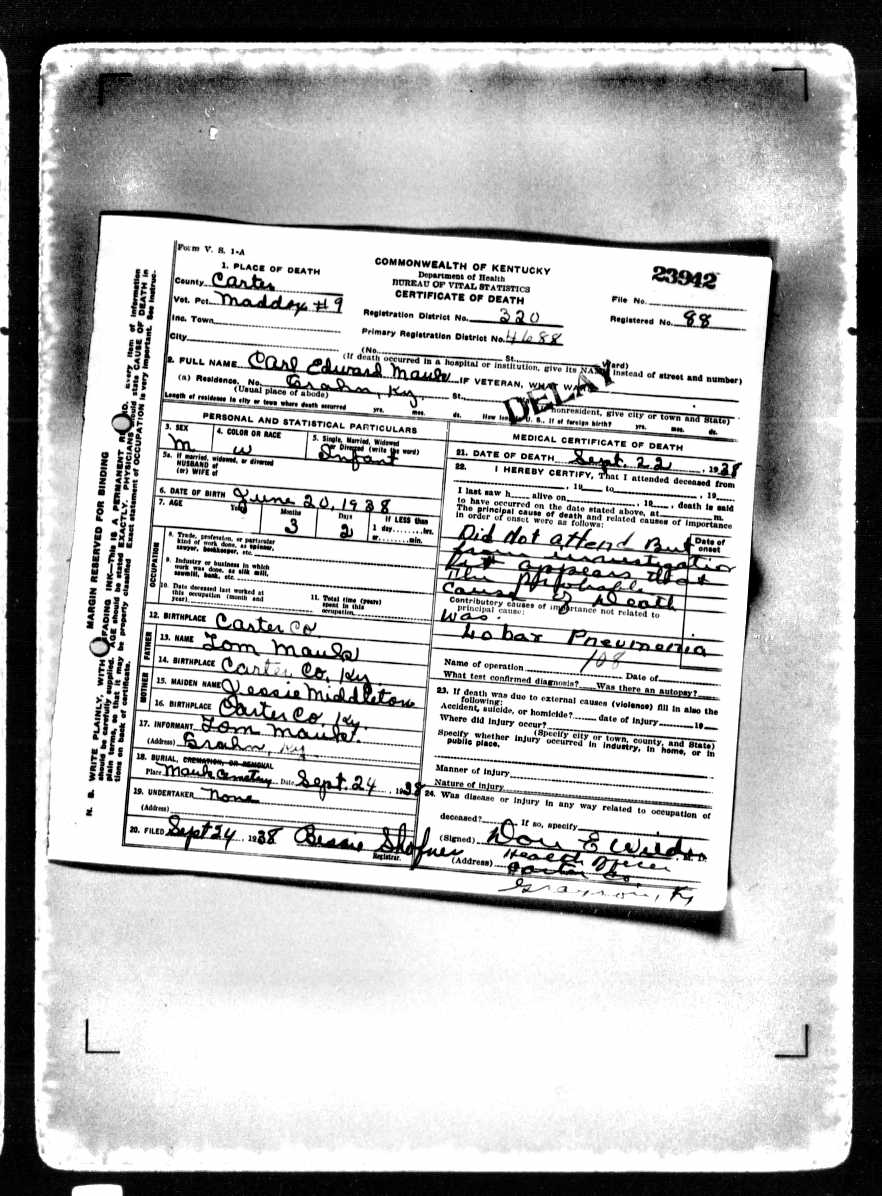 Form V. S. 1-A
COMMONWEALTH OF KENTUCKY
Department of Health
BUREAU OF VITAL STATISTICS
CERTIFICATE OF DEATH
23942
File No.
Registered No. 88
Registration District No. 320
Primary Registration District No. 4688
1. PLACE OF DEATH
County Carter
Vot. Pct. Maddox #9
Inc. Town
City
(No. St. Ward)
(If death occurred in a hospital or institution, give its NAME instead of street and number)
2. FULL NAME Carl Edward Mauk IF VETERAN, WHAT WAR
DELAY
(a) Residence, No. Grahn, Ky. St.
(Usual place of abode) nonresident, give city or town and State)
Length of residence in city or town where death occurred yrs. mos. ds. How long in U. S., if of foreign birth? yrs. mos. ds.
PERSONAL AND STATISTICAL PARTICULARS
3. SEX M
4. COLOR OR RACE W
5. Single, Married, Widowed or Divorced (write the word) Infant
5a. If married, widowed, or divorced
HUSBAND of
(or) WIFE of
6. DATE OF BIRTH June 20, 1938
7. AGE Years Months 3 Days 2 If LESS than 1 day hrs. or min.
OCCUPATION
8. Trade, profession, or particular
kind of work done, as spinner,
sawyer, bookkeeper, etc.
9. Industry or business in which
work was done, as silk mill,
sawmill, bank, etc.
10. Date deceased last worked at
this occupation (month and
year)
11. Total time (years)
spent in this
occupation
12. BIRTHPLACE Carter Co
FATHER
13. NAME Tom Mauk
14. BIRTHPLACE Carter Co, Ky
MOTHER
15. MAIDEN NAME Jessie Middleton
16. BIRTHPLACE Carter Co, Ky.
17. INFORMANT Tom Mauk.
(Address) Grahn, Ky
18. BURIAL, CREMATION, OR REMOVAL
Place Mauk Cemetery Date Sept. 24, 1938
19. UNDERTAKER None
(Address)
20. FILED Sept 24, 1938 Bessie Shofner
Registrar.
MEDICAL CERTIFICATE OF DEATH
21. DATE OF DEATH Sept. 22, 1938
22. I HEREBY CERTIFY, That I attended deceased from
, 19 to , 19
I last saw h alive on , 19 , death is said
to have occurred on the date stated above, at m.
The principal cause of death and related causes of importance
in order of onset were as follows:
Date of onset
Did Not attend But
from investigation
it appears that
the Probable
Cause of Death
Contributory causes of importance not related to
principal cause:
was:
Lobar Pneumonia
108
Name of operation Date of
What test confirmed diagnosis? Was there an autopsy?
23. If death was due to external causes (violence) fill in also the
following:
Accident, suicide, or homicide? date of injury 19
Where did injury occur?
(Specify city or town, county, and State)
Specify whether injury occurred in industry, in home, or in
public place,
Manner of injury
Nature of injury
24. Was disease or injury in any way related to occupation of
deceased? If so, specify
(Signed) Don E Wilder
Health Officer
(Address) Carter Co.
Grayson, Ky
MARGIN RESERVED FOR BINDING